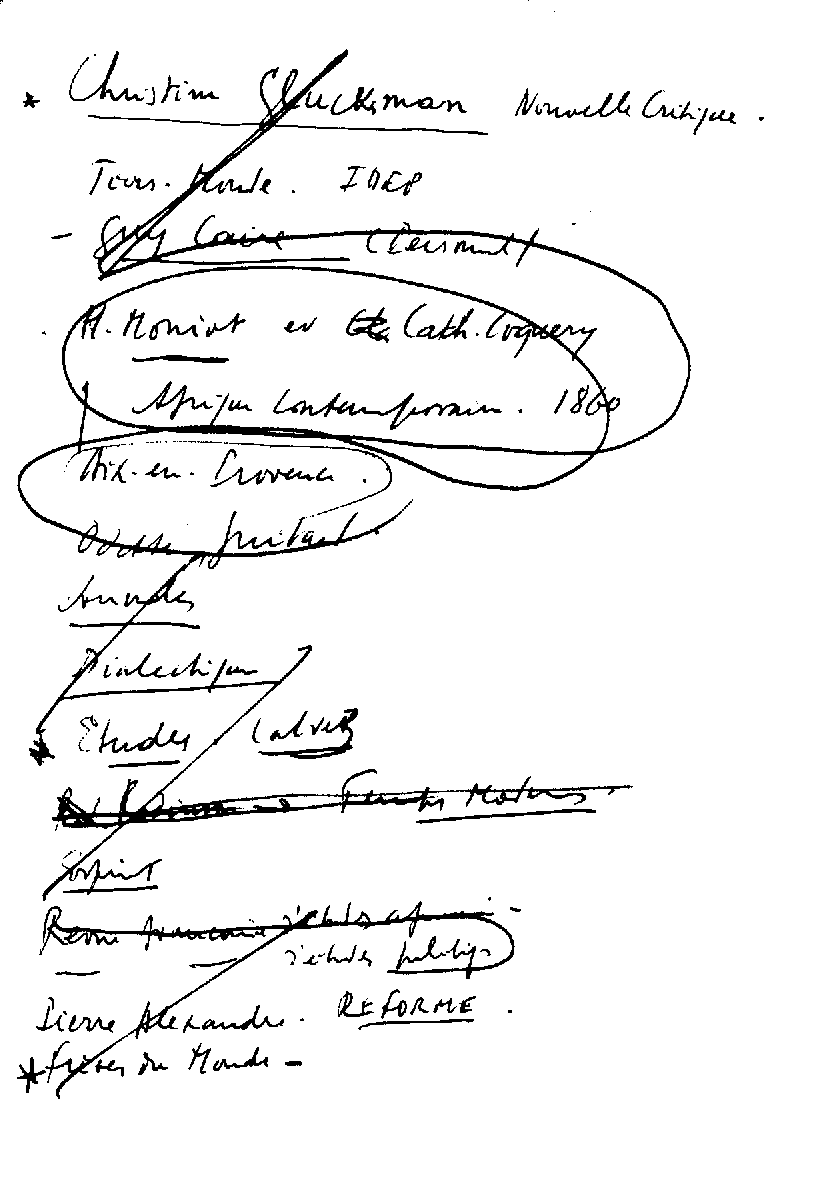 * Christine Glucksman Nouvelle Critique.
Tiers-Monde. IDEP
- Guy Caire (Personnel)
H. Moniot et Cath. Coquery
Afrique Contemporaine. 1860
Aix-en-Provence.
Odette Guitard.
Annales
Dialectique
* Etudes. Calvez
Temps Modernes
Esprit
Revue française d'études africaines -
d'études politiques
Pierre Alexandre. REFORME.
* Frères du Monde -